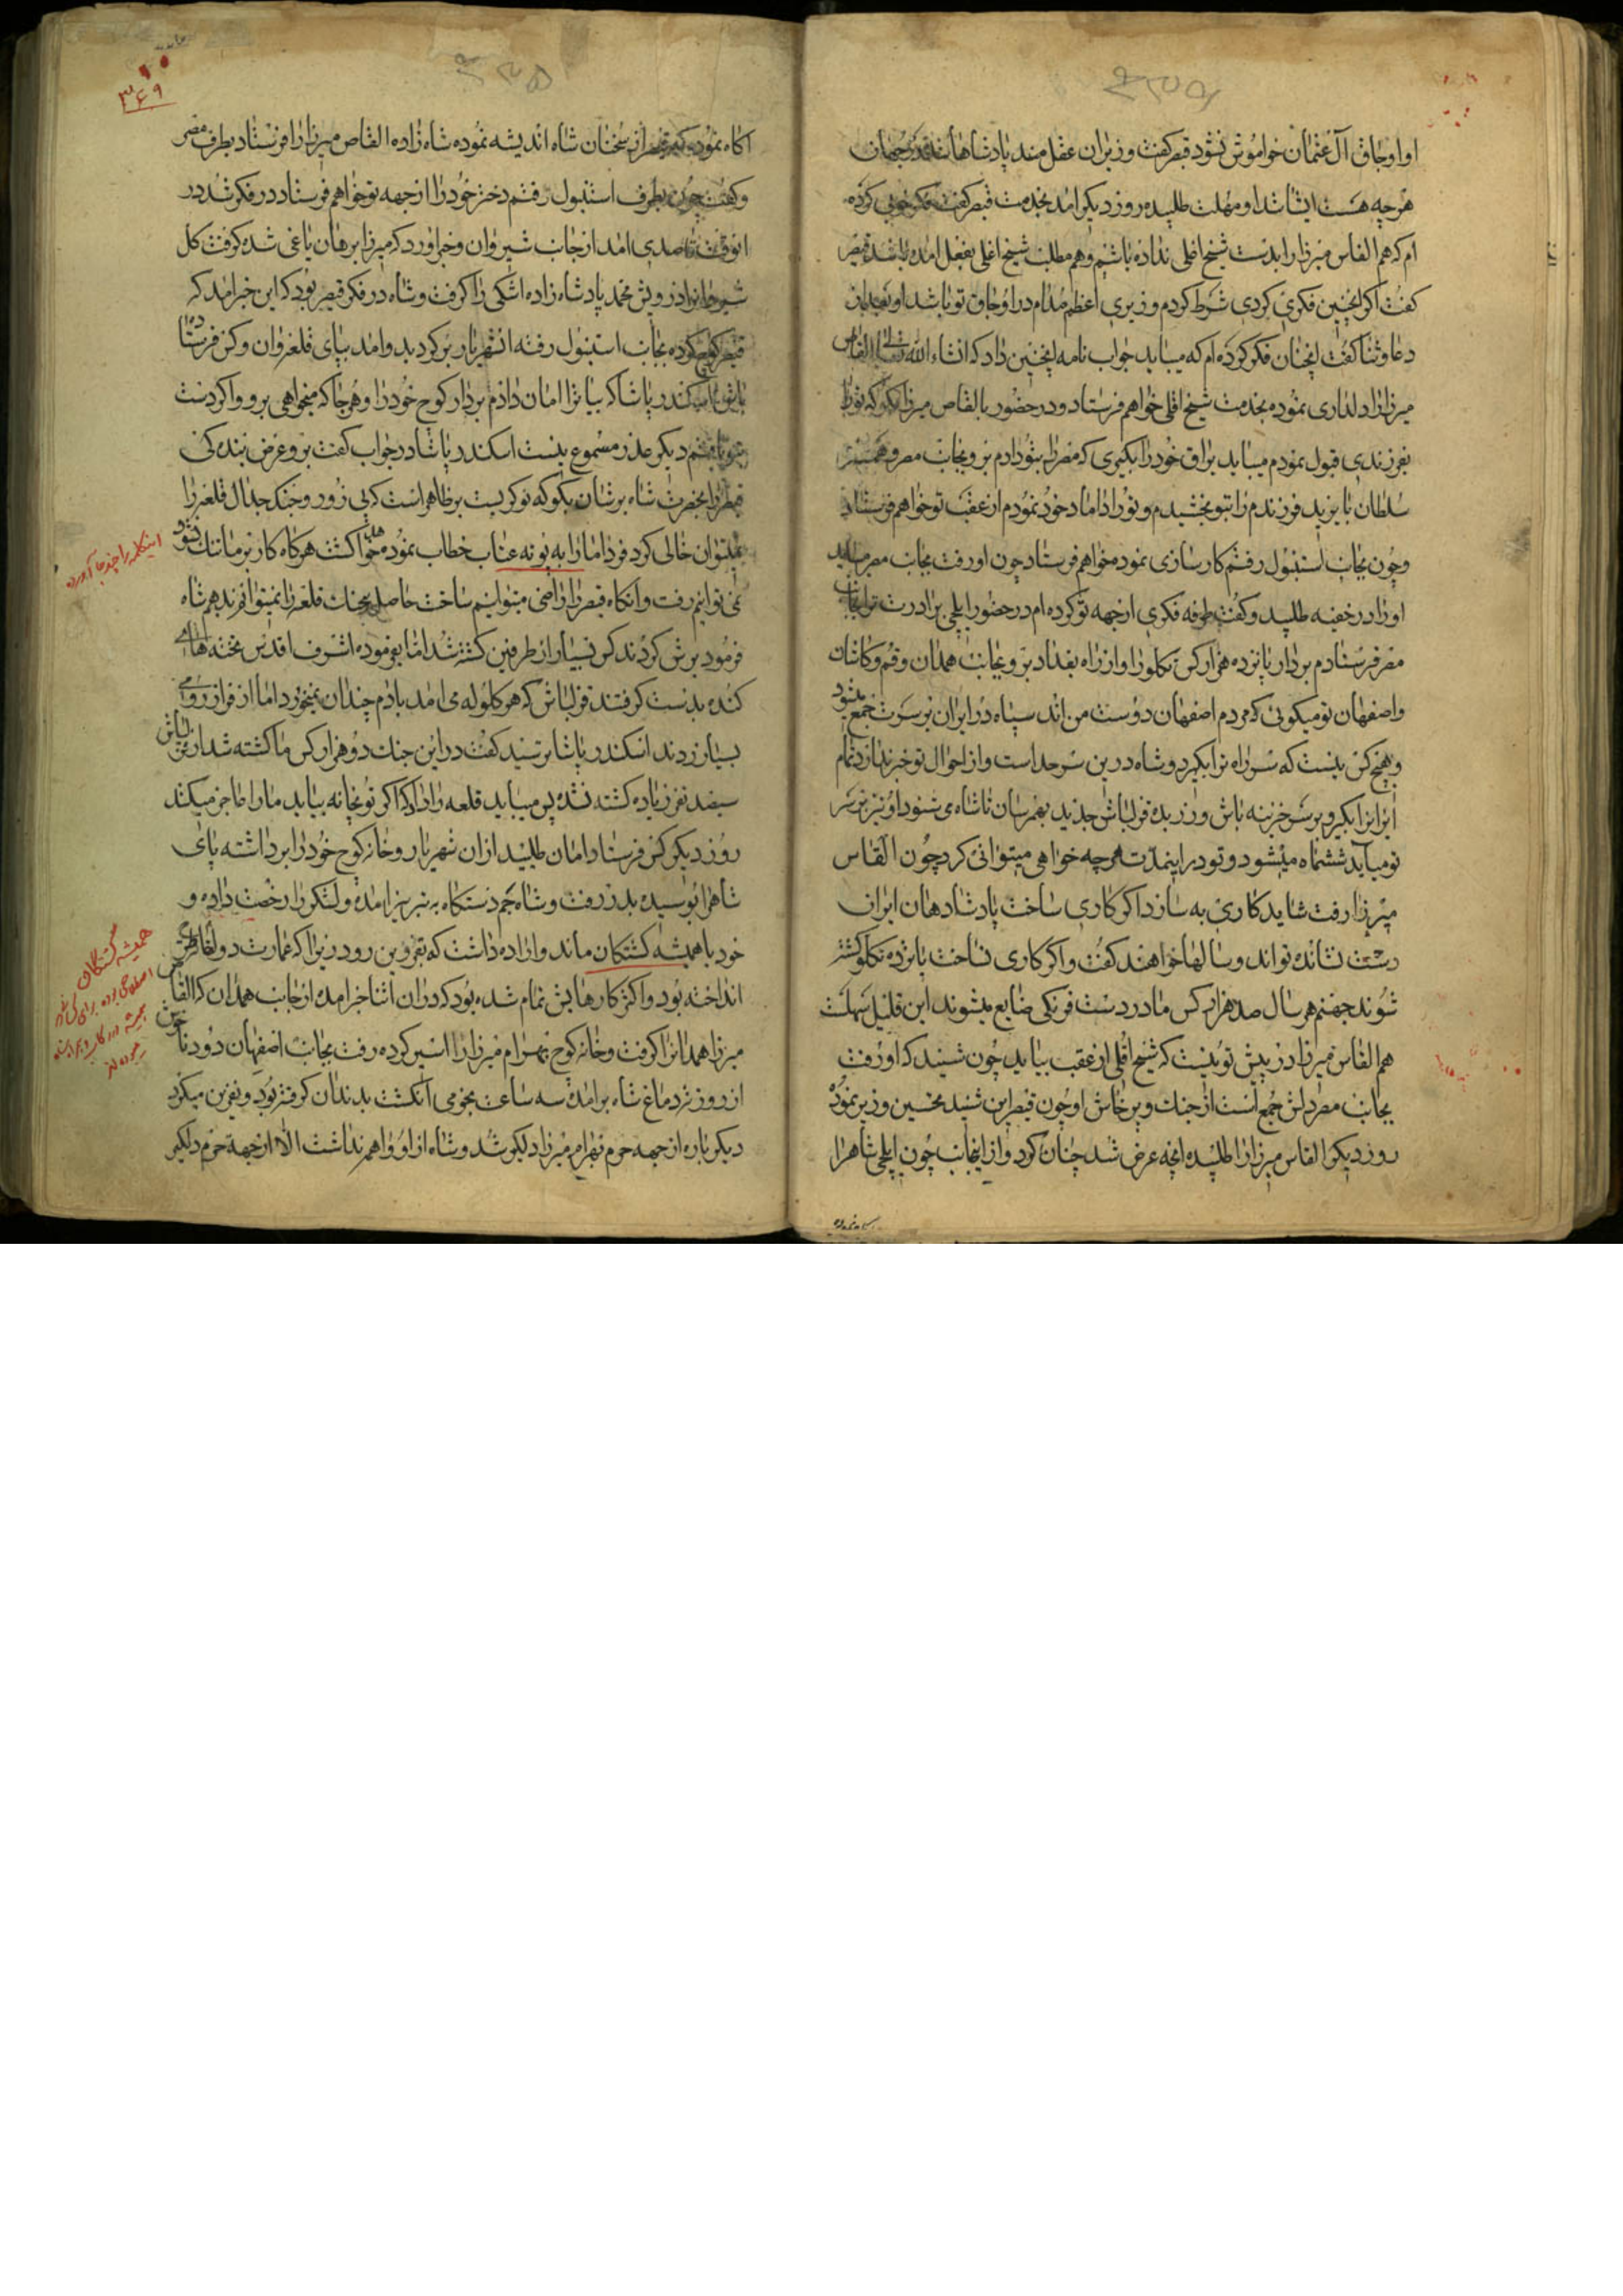 او اوجاق آل عثمان خواموش نشود قیصر کفت وزیران عقل مند پادشاهانند
هرچه هست ایشانند او مهلت طلبیده روز دیکر امد بخدمت قیصر کفت فکر خوبی کرده
ام که هم القاس میرزا را بدست شیخ اغلی نداده باشیم وهم مطلب شیخ اغلی بفعل امده باشد قیصر
کفت اکر انچنین فکری کردی شرط کردم وزیری اعظم مدام در اوجاق تو باشد او بعد از
دعا وثنا کفت انچنان فکر کرده ام که میباید جواب نامه اینچنین داد که انشاء الله تعالی القاص
میرزا را دلداری نموده بخدمت شیخ اقلی خواهم فرستاد ودر حضور بالقاص میرزا بکو که تورا
بفرزندی قبول نمودم میباید یراق خود را بکیری که مصر را بتو دادم برو بجانب مصر وهمشیر
سلطان بایزید فرزندم را بتو بخشیدم وتورا داماد خود نمودم از عقب تو خواهم فرستاد
وچون بجانب استنبول رفتم کار سازی نموده خواهم فرستاد چون او رفت بجانب مصر میباید
اورا در خفیه طلبید وکفت طرفه فکری از جهه تو کرده ام در حضور ایلچی برادرت ترا بجانب
مصر فرستادم بردار پانزده هزار کس تکلو را واز راه بغداد برو بجانب همدان وقم وکاشان
واصفهان تو میکوئی که مردم اصفهان دوست من اند سپاه در ایران بر سرت جمع میشود
وهیچ کس نیست که سر راه ترا بکیرد وشاه در ین سرحد است واز احوال تو خبر ندارد تمام
ایرانرا بکیر وبر سر خزینه باش ورز بده قزلباش جدید بهم رسان تا شاه می شنود او نیز بر سر
تو میآید ششماه میشود وتو در اینمدت هرچه خواهی میتوانی کرد چون القاس
میرزا رفت شاید کاری به سازد اکر کاری ساخت پادشاهان ایران
دست نشانده تواند وسالها خواهند کفت واکر کاری نساخت پانزده تکلو کشته
شوند جهنم هر سال صد هزار کس ما در دست فرنکی ضایع میشوند این قلیل سهلست
هم القاس میرزا در پیش تو نیست که شیخ اقلی از عقب بیاید چون شنید که او رفت
بجانب مصر دلش جمع است از جنک وپرخاش او چون قیصر این شنید تحسین وزیر نموده
روز دیکر القاس میرزا را طلبیده انچه عرض شد چنان کرد واز اینجانب چون ایلچی شاه را
۳۶۹
اکاه نموده که قیصر از سخنان شاه اندیشه نموده شاه زاده القاص میرزا را فرستاد بطرف مصر
وکفت چون بطرف استنبول رفتم دختر خود را از جهه تو خواهم فرستاد در فکر شد در
انوقت قاصدی امد از جانب شیروان وخبر اورد که میرزا برهان یاغی شده کرفت کل
شیروانرا درویش محمد پادشاه زاده اشکی را کرفت وشاه در فکر قیصر بود که این خبر امد که
قیصر کوچ کرده بجانب استنبول رفته انشهریار بر کردید وامد بپای قلعه وان وکس فرستاده
اسکندر پاشا که بیا ترا امان دادم بردار کوچ خود را وهر جا که میخواهی برو واکر دست
دیکر عذر مسموع نیست اسکندر پاشا در جواب کفت برو عرض بنده کی
قیصر را بحضرت شاه برسان بکو که نوکریست بر ظاهر است که بی زور وجنک جدال قلعه را
نمیتوان خالی کرد فردا ما را به بوته عتاب خطاب نموده خواهد کشت هرکاه کار بر ما تنک شود
نمی توانیم رفت وانکاه قیصر را راضی میتوانیم ساخت حاصل بجنک قلعه را نمیتوانم ندیم شاه
فرمود یورش کردند کس بسیار از طرفین کشته شد اما بفرموده اشرف اقدس تخته های
کنده بدست کرفتند قزلباش که هر کلوله می امد بادم چندان نمیخورد اما از فراز رومی
بسیار زدند اسکندر پاشا پرسید کفت در این جنک دو هزار کس ما کشته شد از قزلباش
سیصد نفر زیاده کشته نشده پس میباید قلعه را داد که اکر توپخانه بیاید ما را عاجز میکند
روز دیکر کس فرستاد امان طلبید از ان شهریار وخانه کوچ خود را برداشته پای
شاه را بوسیده بدر رفت وشاه جم دستکاه به تبریز امده ولشکر را رخصت داده و
خود با همیشه کشتکان ماند واراده داشت که بقزوین رود زیرا که عمارت دولتخانه طرح
انداخته بود واکثر کارهایش تمام شده بود که در ان اثنا خبر امد از جانب همدان که القاص
میرزا همدانرا کرفت وخانه کوچ بهرام میرزا را اسیر کرده رفت بجانب اصفهان دود ناخوش
از روزنه دماغ شاه برامده سه ساعت نجومی انکشت بدندان کرفته بود ونفرین میکرد
دیکر باره از جهه حرم بهرام میرزا دلکیر شد وشاه از او واهمه نداشت الا از جهه حرم دلکیر
اینکلمه را چند جا آورده
همیشه کشتکان